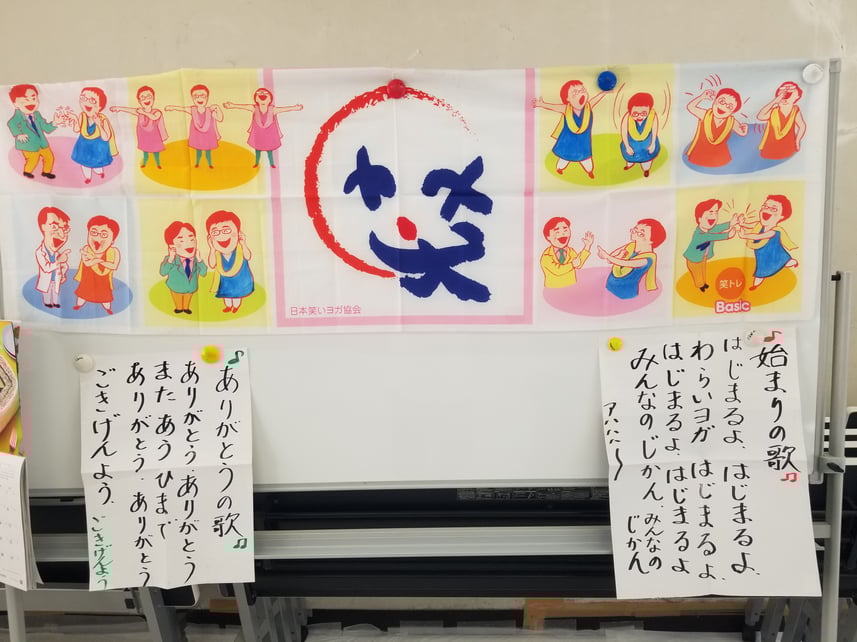 笑
日本笑いヨガ協会
笑トレ
Basic
♪始まりの歌♫
はじまるよ、はじまるよ、
わらいヨガ はじまるよ、
はじまるよ、はじまるよ
みんなのじかん、みんなの
じかん
アハハハ〜
♪ありがとうの歌♫
ありがとう、ありがとう
またあうひまで
ありがとう、ありがとう
ごきげんよう、
ごきげんよう